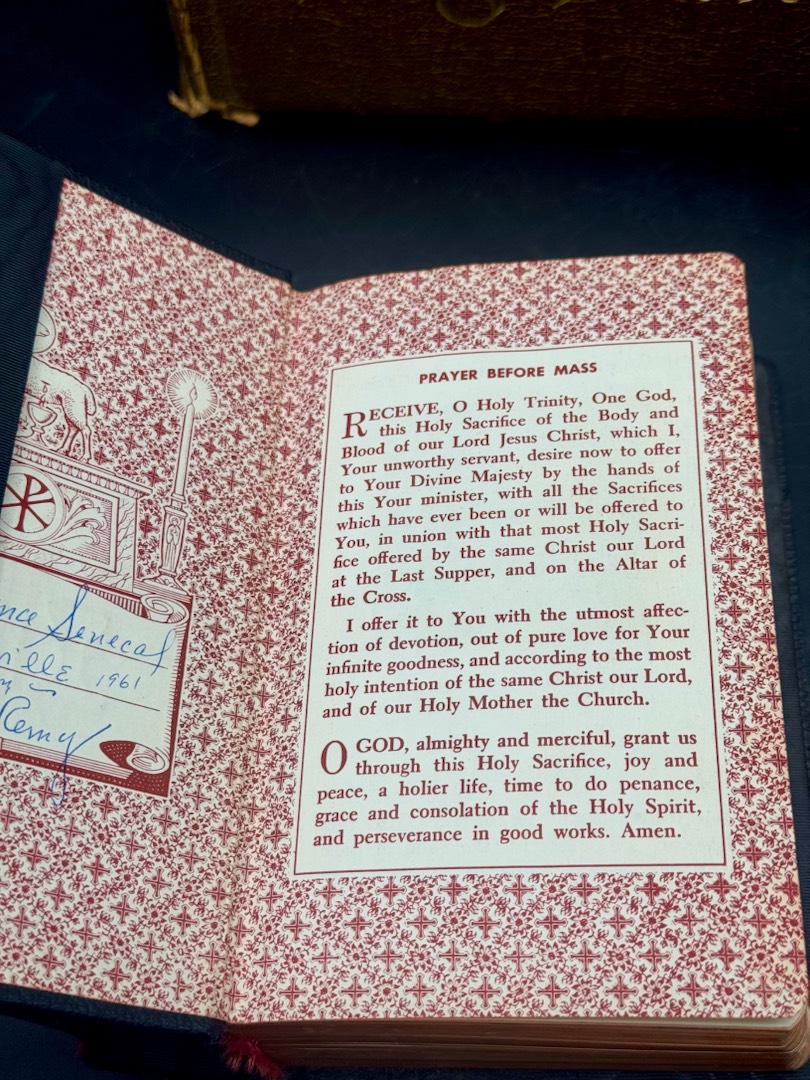 Senecal
1961
Remy
PRAYER BEFORE MASS
RECEIVE, O Holy Trinity, One God,
this Holy Sacrifice of the Body and
Blood of our Lord Jesus Christ, which I,
Your unworthy servant, desire now to offer
to Your Divine Majesty by the hands of
this Your minister, with all the Sacrifices
which have ever been or will be offered to
You, in union with that most Holy Sacri-
fice offered by the same Christ our Lord
at the Last Supper, and on the Altar of
the Cross.
I offer it to You with the utmost affec-
tion of devotion, out of pure love for Your
infinite goodness, and according to the most
holy intention of the same Christ our Lord,
and of our Holy Mother the Church.
O GOD, almighty and merciful, grant us
through this Holy Sacrifice, joy and
peace, a holier life, time to do penance,
grace and consolation of the Holy Spirit,
and perseverance in good works. Amen.